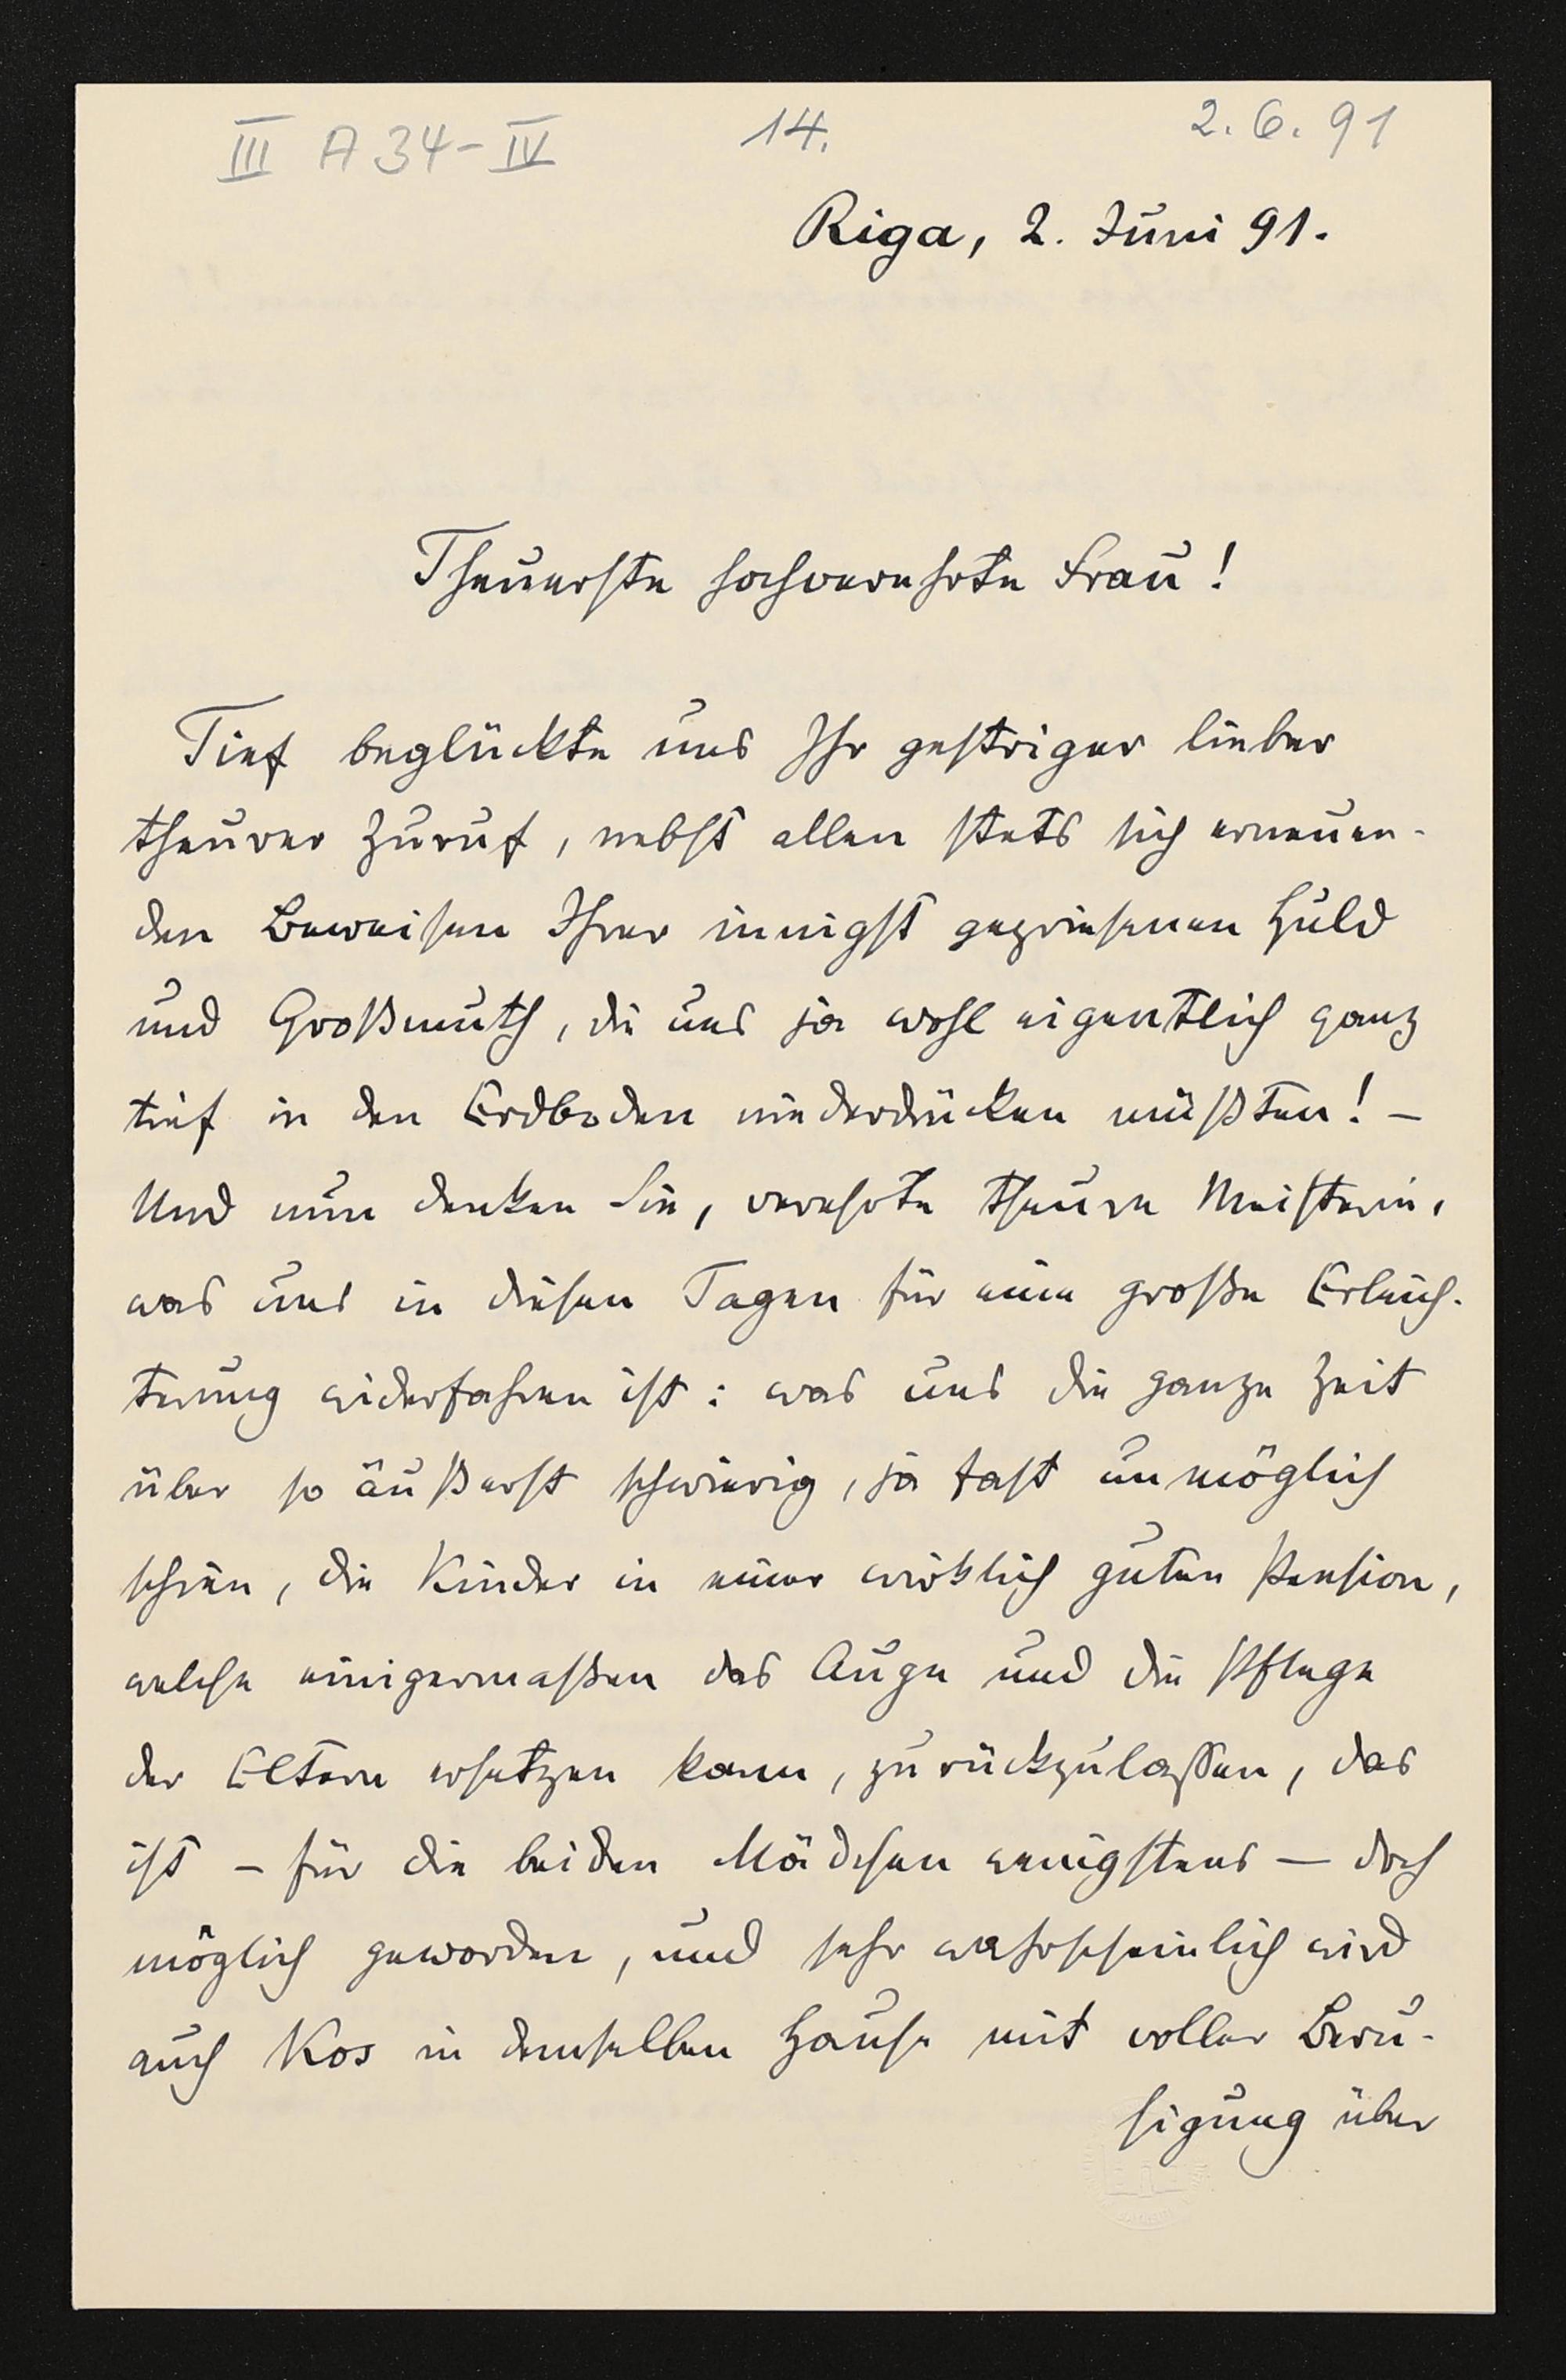 III A 34-IV
14.
2. 6. 91
Riga, 2. Juni 91.
Theuerste hochverehrte Frau!
Tief beglückte uns Ihr gestriger lieber
theurer Zuruf, nebst allen stets sich erneuen-
den Beweisen Ihrer innigst gepriesenen Huld
und Großmuth, die uns ja wohl eigentlich ganz
tief in den Erdboden niederdrücken müßten! –
Und nun denken Sie, verehrte theure Meisterin,
was uns in diesen Tagen für eine große Erleich-
terung widerfahren ist: was uns die ganze Zeit
über so äußerst schwierig, ja fast unmöglich
schien, die Kinder in einer wirklich guten Pension,
welche einigermaßen das Auge und die Pflege
der Eltern ersetzen kann, zurückzulassen, das
ist – für die beiden Mädchen wenigstens – doch
möglich geworden, und sehr wahrscheinlich wird
auch Kos in demselben Hause mit voller Beru-
higung über